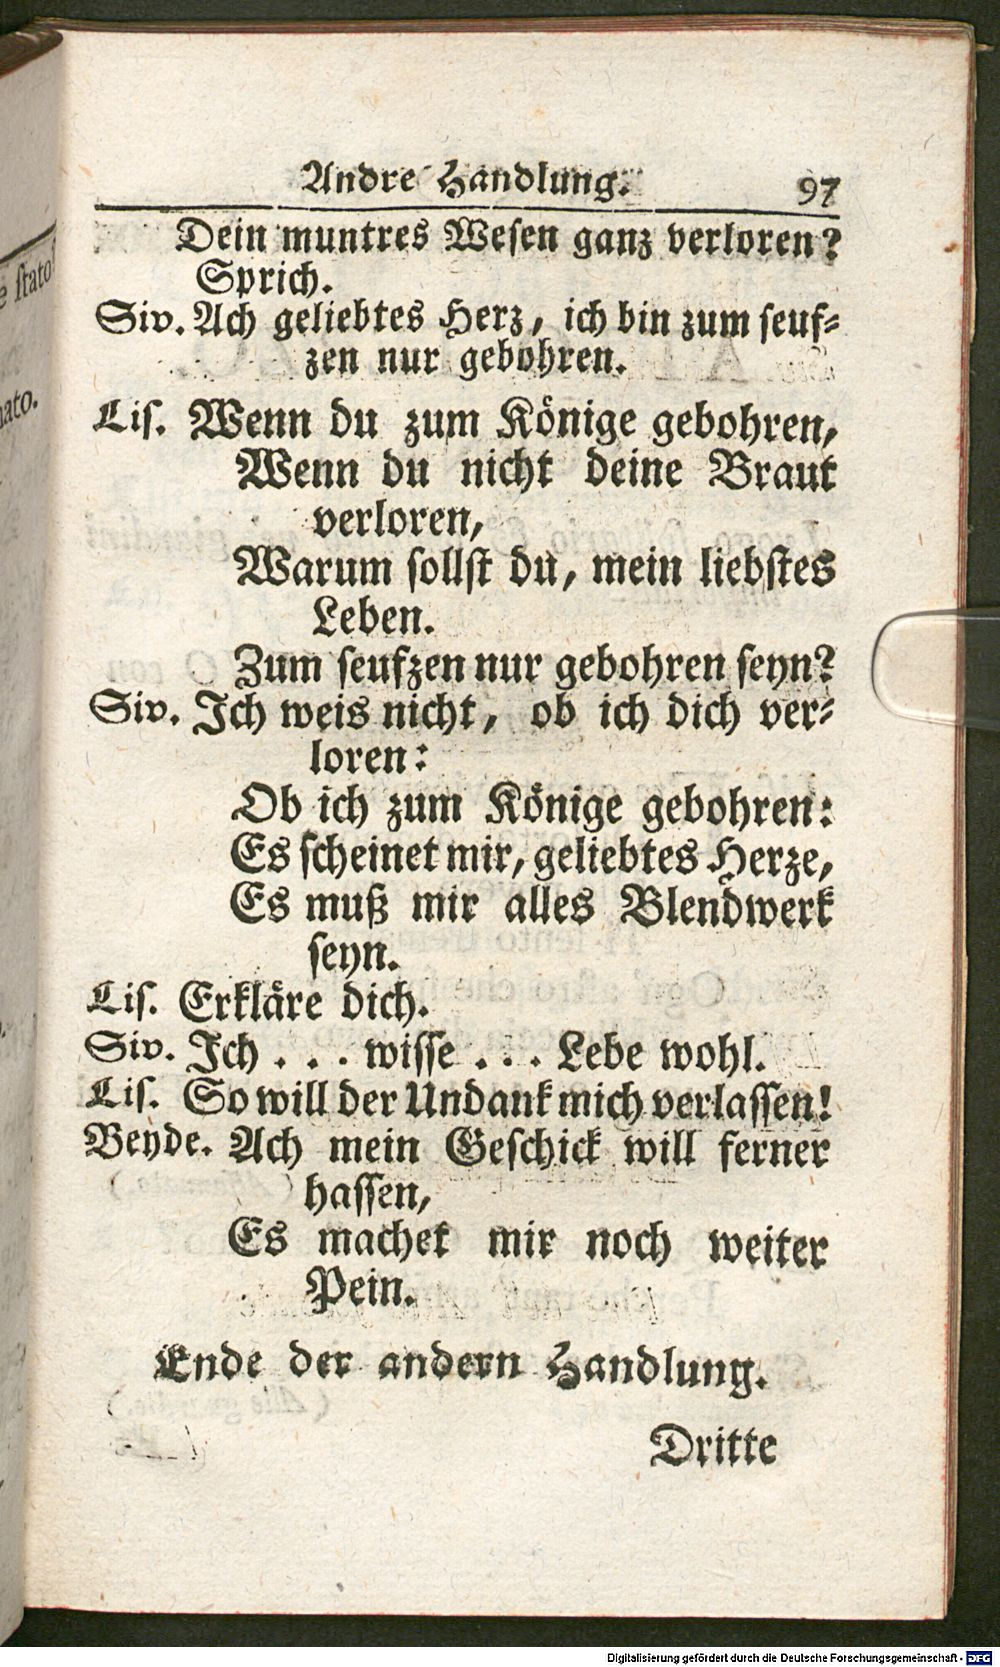 e stato
nato.
Andre Handlung. 97
Dein muntres Wesen ganz verloren?
Sprich.
Siv. Ach geliebtes Herz, ich bin zum seuf-
zen nur gebohren.
Lis. Wenn du zum Könige gebohren,
Wenn du nicht deine Braut
verloren,
Warum sollst du, mein liebstes
Leben.
Zum seufzen nur gebohren seyn?
Siv. Ich weis nicht, ob ich dich ver-
loren:
Ob ich zum Könige gebohren:
Es scheinet mir, geliebtes Herze,
Es muß mir alles Blendwerk
seyn.
Lis. Erkläre dich.
Siv. Ich . . . wisse . . . Lebe wohl.
Lis. So will der Undank mich verlassen!
Beyde. Ach mein Geschick will ferner
hassen,
Es machet mir noch weiter
Pein.
Ende der andern Handlung.
Dritte
Digitalisierung gefördert durch die Deutsche Forschungsgemeinschaft - DFG